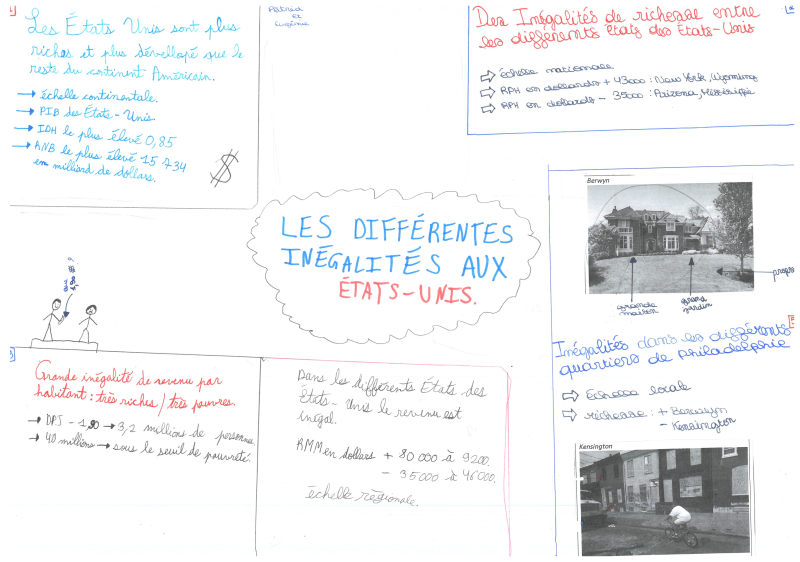 Les États Unis sont plus
riches et plus développé que le
reste du continent Américain.
→ échelle continentale.
→ PIB des États-Unis.
→ IDH le plus élevé 0,85
→ RNB le plus élevé 15 734
en milliard de dollars.
$
Patricia
et
Eugénie
Des Inégalités de richesse entre
les différents états des États-Unis
⇒ échelle nationale
⇒ RPH en dollards + 43000 : New York, Wyoming
⇒ RPH en dollards - 35000 : Arizona, Mississippi
LES DIFFÉRENTES
INÉGALITÉS AUX
ÉTATS-UNIS.
Berwyn
grande
maison
grand
jardin
propr
Inégalités dans les différents
quartiers de Philadelphie
⇒ Echelle locale
⇒ richesse : + Berwyn
- Kensington
Kensington
Grande inégalité de revenu par
habitant : très riches / très pauvres.
→ DPJ - 1,90 → 3,2 millions de personnes.
→ 40 millions → sous le seuil de pauvreté.
Dans les différents États des
États-Unis le revenu est
inégal.
RMM en dollars + 80 000 à 9200.
- 35000 à 46000.
échelle régionale.